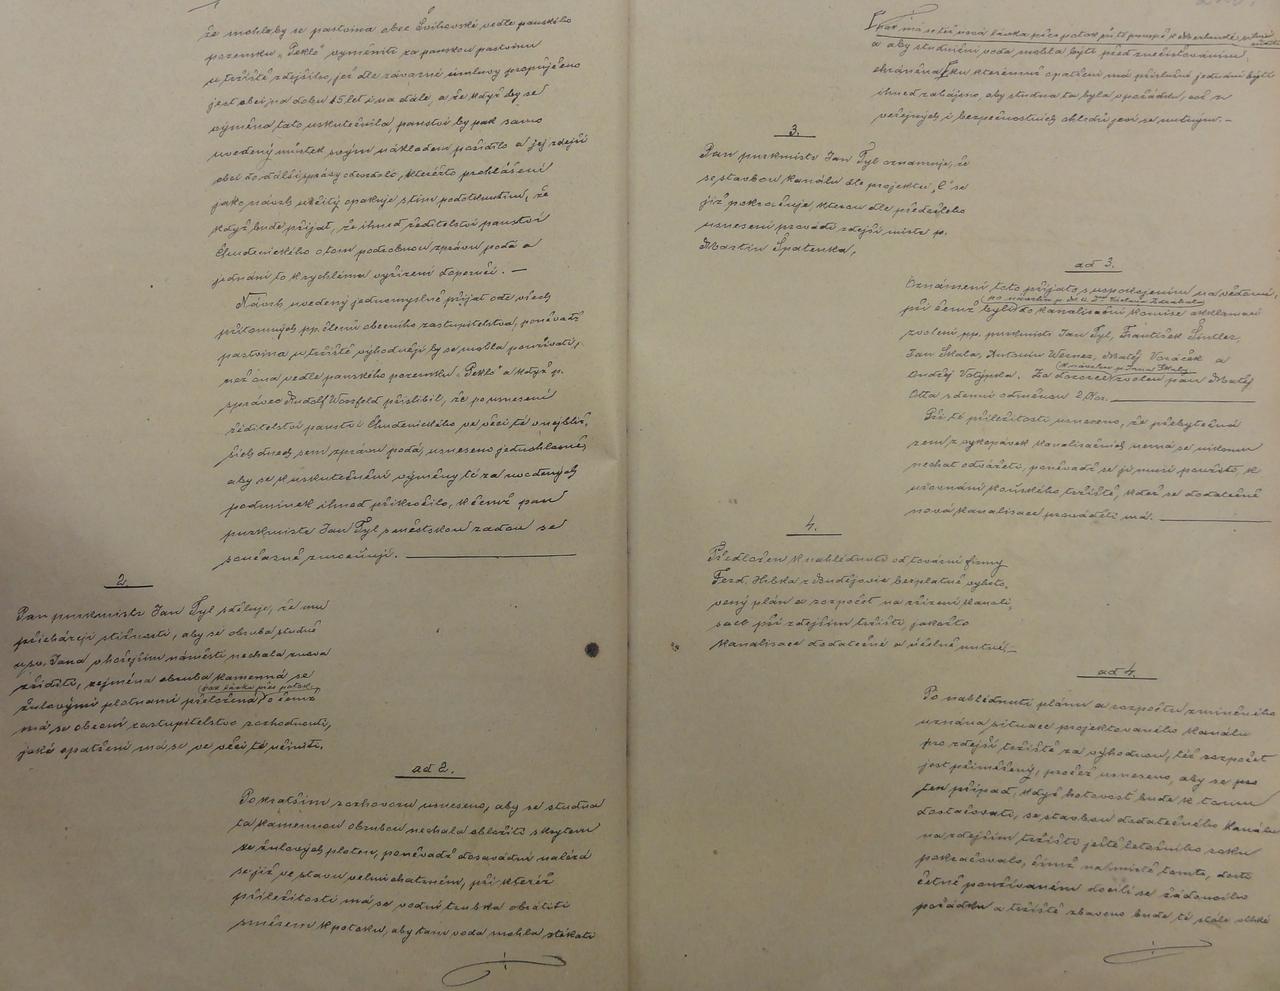 že mohla by se pastvina obce Švihovské vedle panského
pozemku „Peklo" vyměniti za panskou pastvinu
u tržiště zdejšího, jež dle závazné úmluvy propůjčeno
jest obci na dobu 15 let i na dále, a že když by se
výměna tato uskutečnila, panství by pak samo
uvedený můstek svým nákladem pořídilo a jej zdejší
obci do další správy odevzdalo, kteréžto prohlášení
jako návrh určitý opakuje s tím podotknutím, že
když bude přijat, že ihned ředitelství panství
Chudenického o tom podrobnou zprávu podá a
jednání to k rychlému vyřízení doporučí. —
Návrh uvedený jednomyslně přijat ode všech
přítomných pp. členů obecního zastupitelstva, poněvadž
pastvina u tržiště výhodněji by se mohla používati,
než ona vedle panského pozemku „Peklo" a když p.
správce Rudolf přislíbil, že po usnesení
ředitelství panství Chudenického ve věci té v nejbliž-
ších dnech sem zprávu podá, usneseno jednohlasně,
aby se k uskutečnění výměny té za uvedených
podmínek ihned přikročilo, k čemuž pan
purkmistr Jan Tyl s městskou radou se
současně zmocňují.
2.
Pan purkmistr Jan Tyl sděluje, že mu
přicházejí stížnosti, aby se obruba studně
u sv. Jana v hořejším náměstí nechala znova
zříditi, zejména obruba kamenná se
(pak lávka přes potok)
žulovými plotnami přeložena, o čemž
má se obecní zastupitelstvo rozhodnouti,
jaké opatření má se ve věci té učiniti.
ad 2.
Po kratším rozhovoru usneseno, aby se studna
ta kamennou obrubou nechala obložiti s krytem
ze žulových ploten, poněvadž dosavádní nalézá
se již ve stavu velmi chatrném, při kteréž
příležitosti má se vodní trubka obrátiti
směrem k potoku, aby tam voda mohla stékati
pak má se též nová lávka přes potok při té pumpě
a aby studniční voda mohla býti před znečišťováním
chráněna, ku kterémuž opatření má příslušné jednání býti
ihned zahájeno, aby studna ta byla v pořádku, což z
veřejných i bezpečnostních ohledů jeví se nutným. —
3.
Pan purkmistr Jan Tyl oznamuje, že
se stavbou kanálu dle projektu „C" se
již pokračuje, kterou dle předešlého
usnesení provádí zdejší mistr p.
Martin Špatenka,
ad 3.
Oznámení toto přijato s uspokojením na vědomí,
při čemž byli do kanalisační komise akklamací
zvoleni pp. purkmistr Jan Tyl, František Šintler,
Jan Skala, Antonín Werner, Matěj Voráček a
(k návrhu p. Jana Skaly)
Ondřej Votýpka. Za dozorce zvolen pan Matěj
Otta s denní odměnou 2 Kor.
Při té příležitosti usneseno, že přebytečná
zem z vykopávek kanalisačních nemá se nikomu
nechat odvážeti, poněvadž se jí musí použíti k
urovnání koňského tržiště, kdež se dodatečně
nová kanalisace prováděti má.
4.
Předložen k nahlédnutí od tovární firmy
Ferd. Hibka z Budějovic bezplatně vyhoto-
vený plán a rozpočet na zřízení kanali-
sace při zdejším tržišti, jakožto
kanalisace dodatečné a účelně nutné. —
ad 4.
Po nahlédnutí plánu a rozpočtu zmíněného
uznána situace projektovaného kanálu
pro zdejší tržiště za výhodnou, též rozpočet
jest přiměřený, pročež usneseno, aby se pro
ten případ, když hotovost bude k tomu
dostačovati, se stavbou dodatečného kanálu
na zdejším tržišti ještě letošního roku
pokračovalo, čímž na místě tomto, dosti
četně používaném docílí se žádoucího
pořádku a tržiště zbaveno bude té stálé